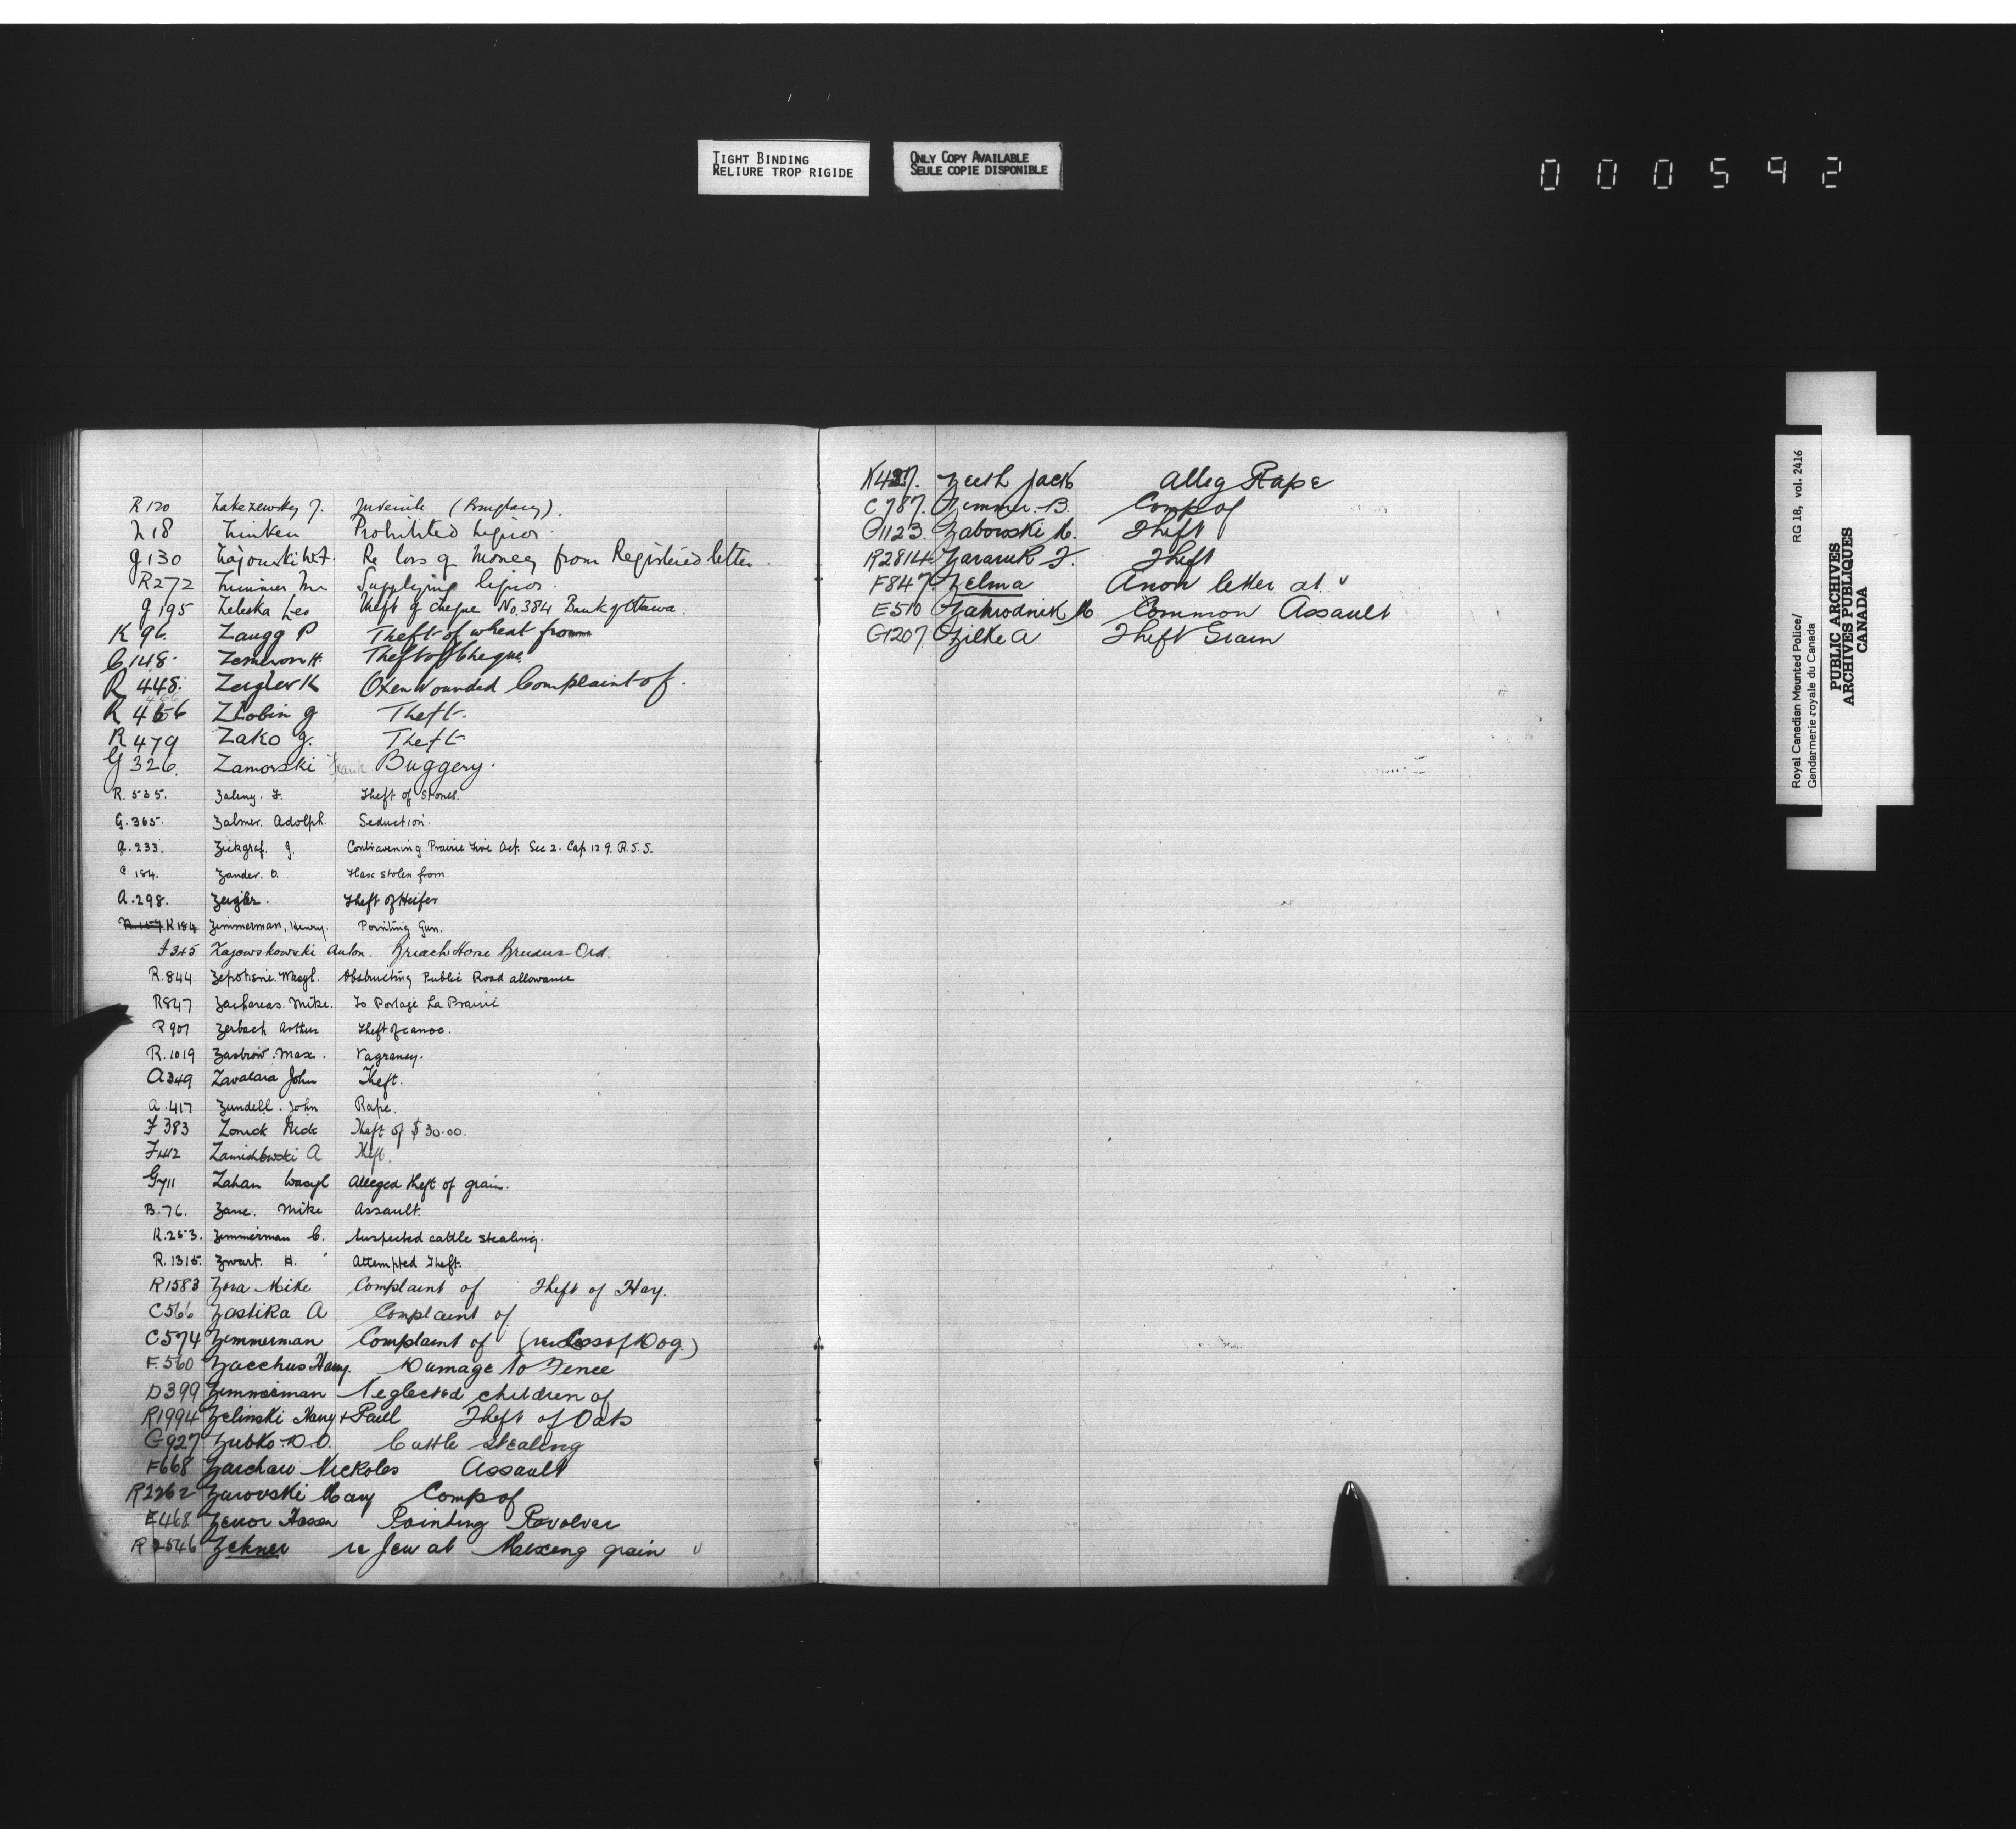 TIGHT BINDING
RELIURE TROP RIGIDE
ONLY COPY AVAILABLE
SEULE COPIE DISPONIBLE
000592
R 120 Zakezewsky J. Juvenile (Burglary).
Z 18 Zinken Prohibited liquor.
G 130 Zajouski W.F. Re loss of Money from Registered letter.
R 272 Zimmer Mr Supplying liquor.
G 195 Zeleska Leo Theft of cheque No. 384 Bank of Ottawa.
K 96. Zaugg P Theft of wheat from
C 148. H. Theft of Cheque.
R 448. Zeigler K Oxen Wounded Complaint of.
R 466 Zlobin G Theft.
R 479 Zako G. Theft
G 326. Zamorski Frank Buggery.
R. 535. Zaleny. F. Theft of Stones.
G. 365. Zalmer. Adolph. Seduction.
A. 233. Zickgraf. J. Contravening Prairie Fire Act. Sec 2. Cap 129. R.S.S.
C 184. Zander. O. Flax stolen from.
A. 298. Zeigler. Theft of Heifer
K 184 Zimmerman, Henry. Pointing Gun.
F 345 Zajowskowski Anton. Breach Horse Breeders Ord.
R. 844 Wasyl. Obstructing Public Road allowance
R 847 Zacharas. Mike. To Portage La Prairie
R 907 Zerbach Arthur Theft of canoe.
R. 1019 Zastrow. Max. Vagrancy.
A 349 Zavalara John Theft.
A. 417 Zundell. John Rape.
F 383 Zonick Nick Theft of $30.00.
F 442 Zamichowski A Theft.
G 711 Zahan Wasyl Alleged theft of grain.
B. 76. Zane. Mike Assault.
K. 253. Zimmerman C. Suspected cattle stealing.
R. 1315. Zwart. H. Attempted Theft.
R 1583 Zora Mike Complaint of Theft of Hay.
C 566 Zastika A Complaint of
C 574 Zimmerman Complaint of (re Loss of Dog.)
F. 560 Zacchus Harry. Damage to Fence
D 399 Zimmerman Neglected children of
R 1994 Zelinski Harry + Paul Theft of Oats
G 927 Zubko D.O. Cattle Stealing
F 668 Zarchaw Nickolas Assault
R 2262 Zurovski Mary Comp of
E 468 Zenor Pointing Revolver
R 2546 Zehner re Jew at Mixing grain
K 427. Zeeh Jack Alleg Rape
C 787. Zimmer. B. Comp of
G 1123. Zabowski M. Theft
R 2814. Zararuk F. Theft
F 847. Zelma Anon letter at
E 510 Zahrodnik M. Common Assault
G 1207. Zilke A Theft Grain
Royal Canadian Mounted Police/ RG 18, vol. 2416
Gendarmerie royale du Canada
PUBLIC ARCHIVES
ARCHIVES PUBLIQUES
CANADA